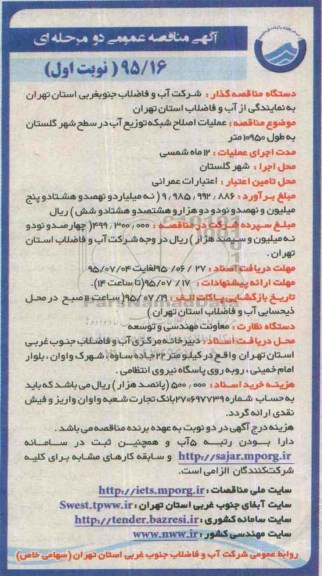 آگهی مناقصه عمومی دو مرحله ای
۹۵/۱۶ ( نوبت اول)
دستگاه مناقصه گذار : شرکت آب و فاضلاب جنوبغربی استان تهران
به نمایندگی از آب و فاضلاب استان تهران
موضوع مناقصه : عملیات اصلاح شبکه توزیع آب در سطح شهر گلستان
به طول ۱۰۹۵۰ متر
مدت اجرای عملیات : ۱۲ ماه شمسی
محل اجرا : شهر گلستان
محل تامین اعتبار : اعتبارات عمرانی
مبلغ برآورد : ۹،۹۸۵،۹۹۲،۸۸۶ ( نه میلیارد و نهصد و هشتاد و پنج
میلیون و نهصد و نود و دو هزار و هشتصد و هشتاد و شش ) ریال
مبلغ سپرده شرکت در مناقصه : ۴۹۹،۳۰۰،۰۰۰ ( چهارصد و نود و
نه میلیون و سیصد هزار ) ریال در وجه شرکت آب و فاضلاب استان
تهران .
مهلت دریافت اسناد : ۲۷ / ۰۶ /۹۵ لغایت ۹۵/۰۷/۰۴
مهلت ارائه پیشنهادات : ۱۷/ ۰۷ /۹۵ (تا ساعت ۱۴).
تاریخ بازگشایی پاکات الف : ۹۵/۰۷/۱۹ ( ساعت ۹ صبح در محل
ذیحسابی آب و فاضلاب استان تهران )
دستگاه نظارت : معاونت مهندسی و توسعه
محل دریافت اسناد : دبیرخانه مرکزی آب و فاضلاب جنوب غربی
استان تهران واقع در کیلومتر ۲۲ جاده ساوه ، شهرک واوان ، بلوار
امام خمینی ، روبه روی پاسگاه نیروی انتظامی .
هزینه خرید اسناد : ۵۰۰،۰۰۰ (پانصد هزار) ریال می باشد که باید
به حساب شماره ۲۷۰۶۹۷۷۳۹ بانک تجارت شعبه واوان واریز و فیش
نقدی ارائه گردد.
هزینه درج آگهی در دو نوبت به عهده برنده مناقصه می باشد .
دارا بودن رتبه ۵ آب و همچنین ثبت در سامانه
http://sajar.mporg.ir و سابقه کارهای مشابه برای کلیه
شرکت کنندگان الزامی است.
سایت ملی مناقصات : http://iets.mporg.ir
سایت آبفای جنوب غربی استان تهران : Swest.tpww.ir
سایت سامانه کشوری : http://tender.bazresi.ir
سایت مهندسی کشور : www.nww.ir
روابط عمومی شرکت آب و فاضلاب جنوب غربی استان تهران (سهامی خاص)